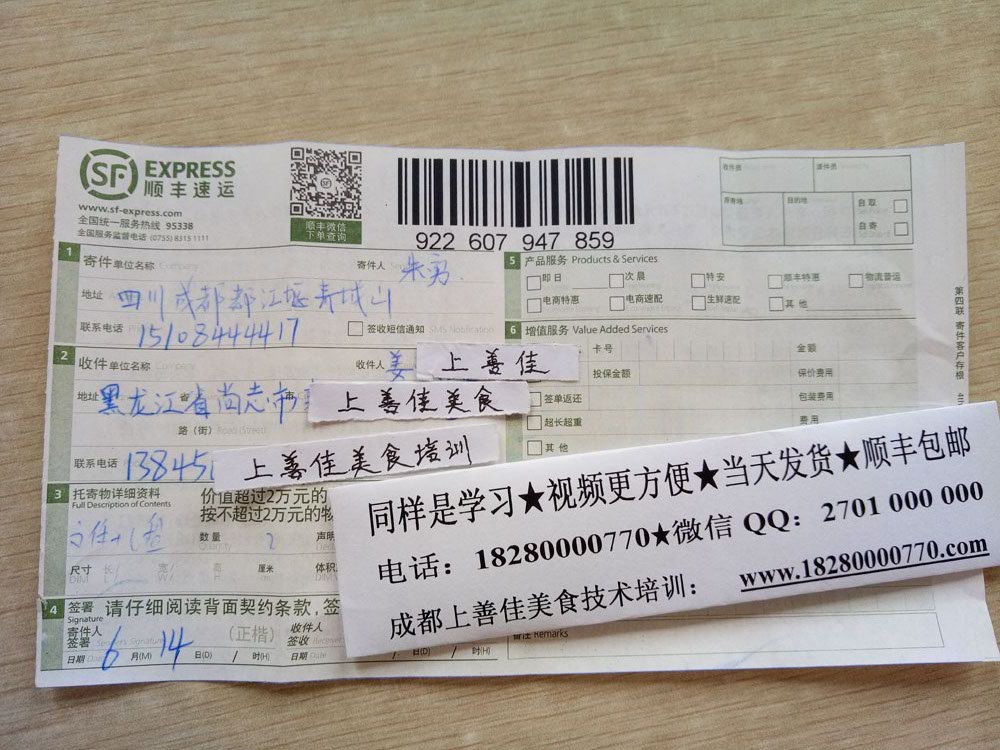 SF EXPRESS
顺丰速运
www.sf-express.com
全国统一服务热线 95338
全国服务监督电话 (0755) 8315 1111
顺丰微信
下单查询
922 607 947 859
收件员
派件员
原寄地
目的地
自取
自寄
1
寄件单位名称 Company
寄件人
朱勇
地址 四川成都都江堰青城山
联系电话 15108444417
签收短信通知 SMS Notification
2
收件单位名称 Company
收件人 姜
上善佳
地址 黑龙江省尚志市
上善佳美食
路(街) Road (Street)
联系电话 138451
上善佳美食培训
3
托寄物详细资料
Full Description of Contents
价值超过2万元的
按不超过2万元的物
数量 2
声明
尺寸 长/ 宽/ 高 厘米
体积
4
签署
Signature
请仔细阅读背面契约条款,签
寄件人
签署
(正楷)
收件人
签收
日期 6 月(M) 14 日(D) / 时(H)
日期 Date 日(D) / 时(H)
5
产品服务 Products & Services
即日
次晨
特安
顺丰特惠
物流普运
电商特惠
电商速配
生鲜速配
其他
6
增值服务 Value Added Services
卡号
金额
投保金额
保价费用
签单返还
包装费用
超长超重
费用
其他
备注 Remarks
第四联 寄件客户存根
同样是学习★视频更方便★当天发货★顺丰包邮
电话：18280000770★微信 QQ：2701 000 000
成都上善佳美食技术培训：www.18280000770.com